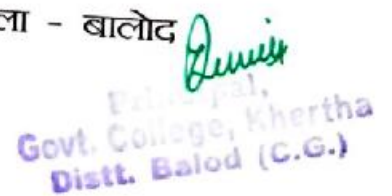 ला - बालोद
Principal,
Govt. College, Khertha
Distt. Balod (C.G.)